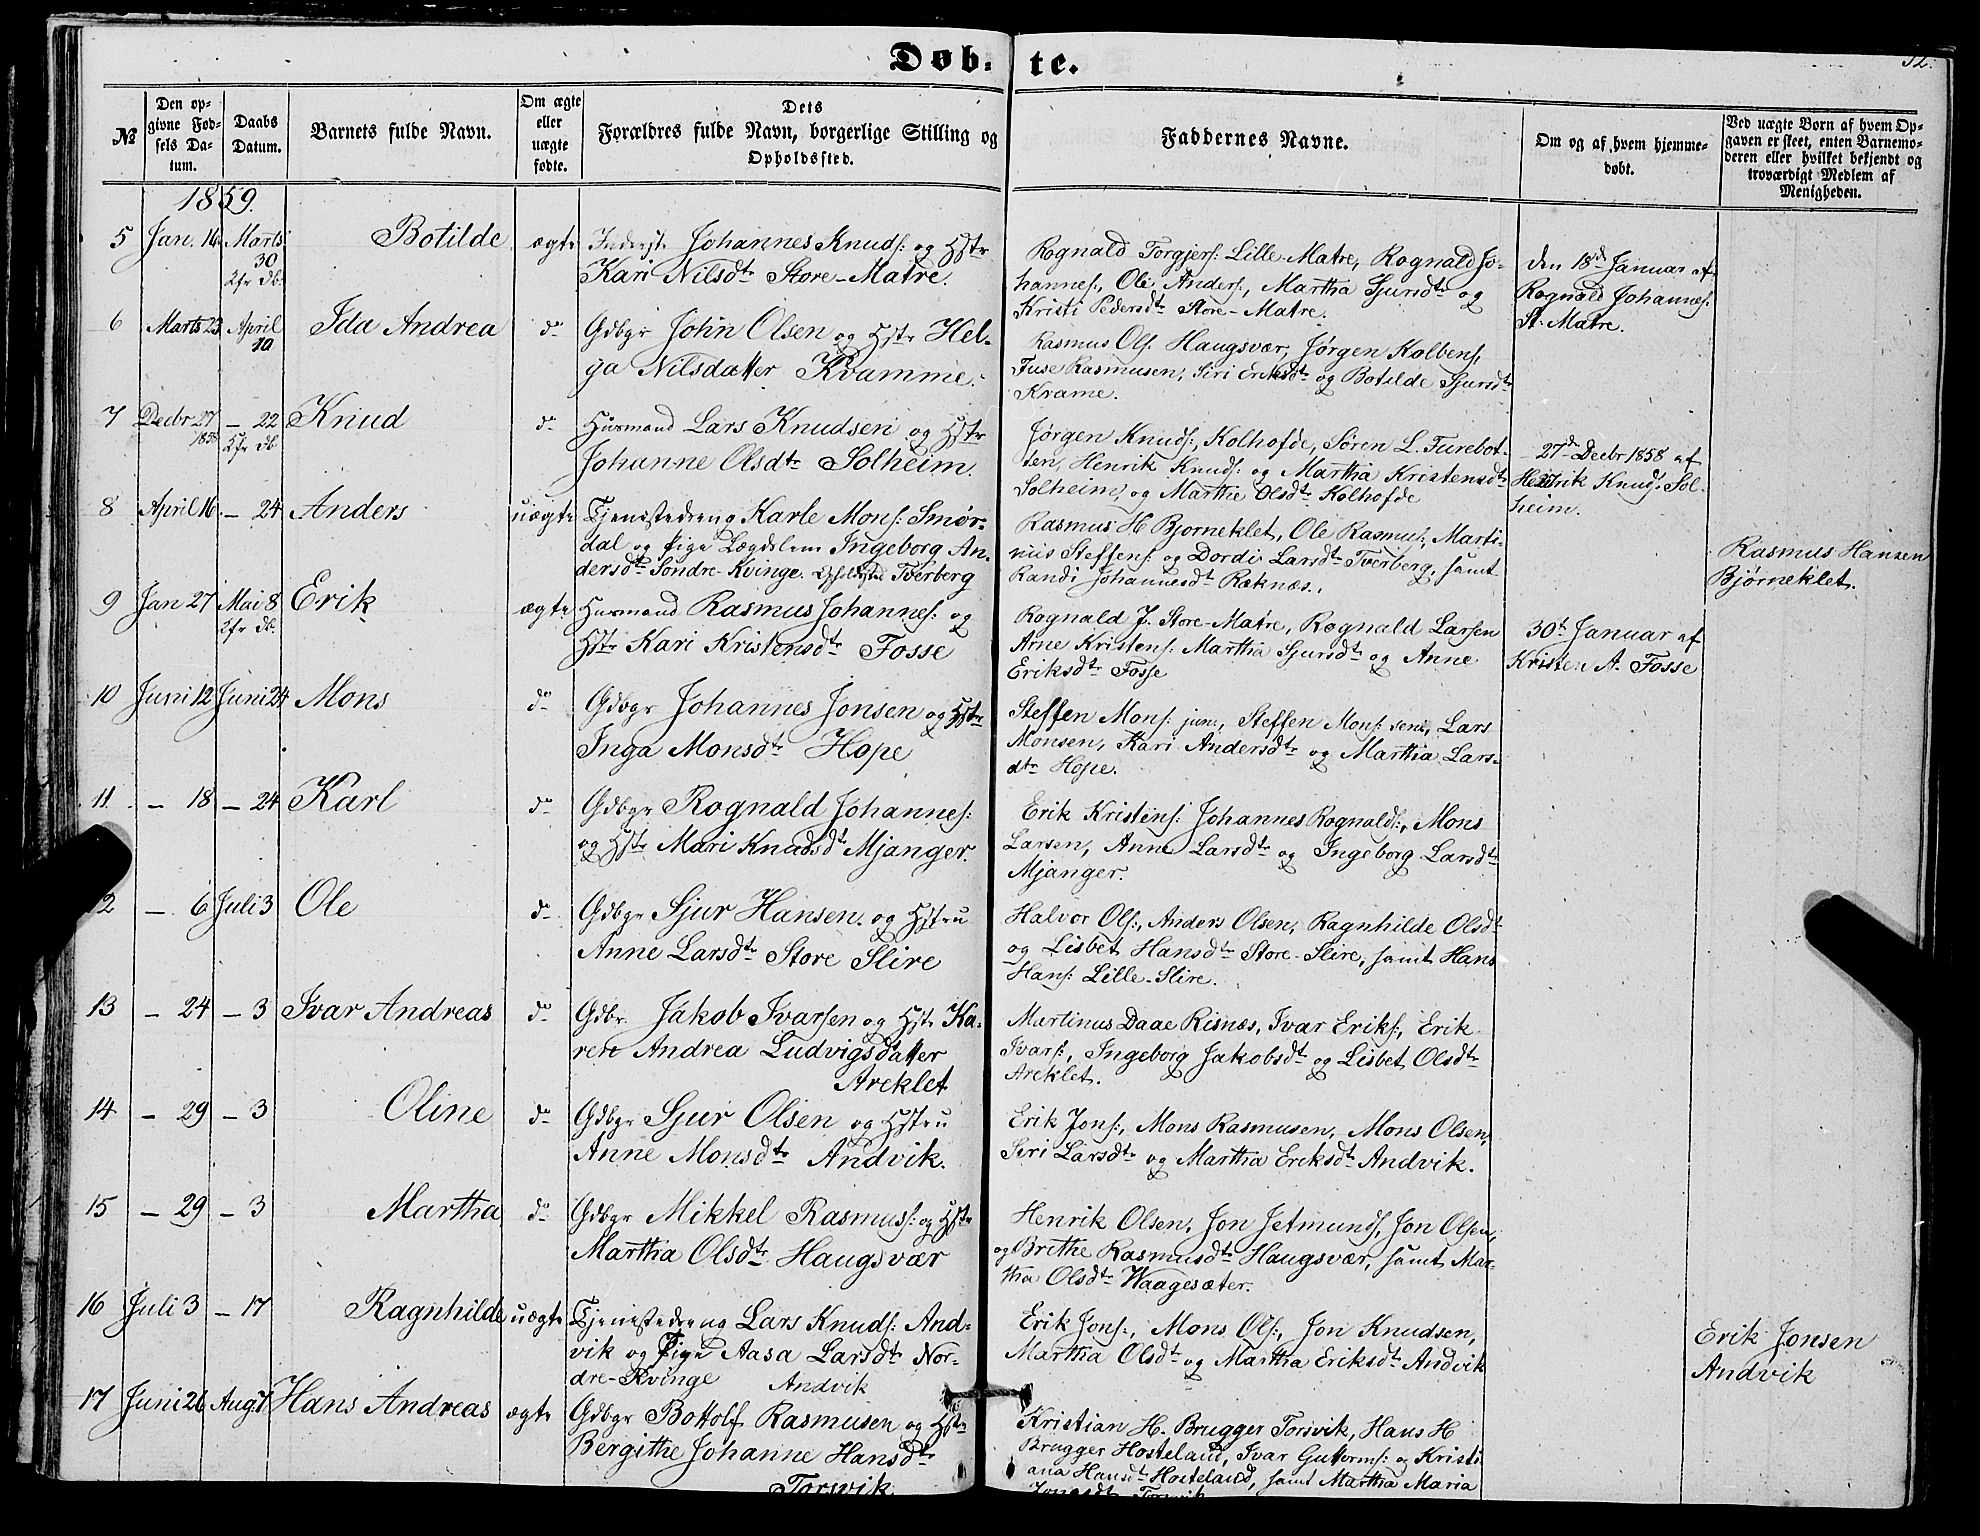 Døb- te.
№
Den op-
givne Fød-
sels Da-
tum.
Daabs
Datum.
Barnets fulde Navn.
Om ægte
eller
uægte
fødte.
Dets
Forældres fulde Navn, borgerlige Stilling og
Opholdssted.
Faddernes Navne.
Om og af hvem hjemme-
døbt.
Ved uægte Børn af hvem Op-
gaven er skeet, enten Barnemo-
deren eller hvilket bekjendt og
troværdigt Medlem af
Menigheden.
1859.
5 Jan. 16 Marts 30 2fr db. Botilde ægte
Inderst Johannes Knuds: og Hstr
Kari Nilsdtr Store-Matre.
Rognald Torgjers: Lille-Matre, Rognald Jo-
hannes:, Ole Anders:, Martha Sjursdtr og
Kristi Pedersdtr Store-Matre.
den 18de Januar af
Rognald Johannes:
St. Matre.
6 Marts 23 April 10 Ida Andrea do
Gdbgr John Olsen og Hstr Hel-
ga Nilsdatter Kvamme.
Rasmus Ols: Haugsvær, Jørgen Kolbens:
Fuse Rasmusen, Siri Eriksdtr og Botilde Sjursdtr
Kvame.
7 Decbr 27 1858 – 22 2fr db Knud do
Husmand Lars Knudsen og Hstr
Johanne Olsdtr Solheim.
Jørgen Knuds: Kolhofde, Søren L. Furebot-
ten, Henrik Knuds: og Martha Kristensdtr
Solheim, og Marthe Olsdtr Kolhofde
27de Decbr 1858 af
Henrik Knuds: Sol-
heim.
8 April 16 – 24 Anders uægte
Tjenestedreng Karle Mons: Smør-
dal og Pige Lægdslem Ingeborg An-
dersdtr Søndre-Kvinge. Opholdssted Tverberg
Rasmus H Bjorneklet, Ole Rasmus:, Marti-
nus Steffens: og Dordi Larsdtr Tverberg, samt
Randi Johannesdtr Raknæs.
Rasmus Hansen
Bjørneklet.
9 Jan 27 Mai 8 2fr db. Erik ægte
Husmand Rasmus Johannes: og
Hstr Kari Kristensdtr Fosse
Rognald J. Store-Matre, Rognald Larsen
Arne Kristens: Martha Sjursdtr og Anne
Eriksdtr Fosse
30t Januar af
Kristen A. Fosse
10 Juni 12 Juni 24 Mons do
Gdbgr Johannes Jonsen og Hstr
Inga Monsdtr Hope
Steffen Mons: jun:, Steffen Mons: sen:, Lars
Monsen, Kari Andersdtr og Martha Lars-
dtr Hope.
11 – 18 – 24 Karl do
Gdbgr Rognald Johannes:
og Hstr Mari Knudsdtr Mjanger.
Erik Kristens: Johannes Rognalds:, Mons
Larsen, Anne Larsdtr og Ingeborg Larsdtr
Mjanger.
12 – 6 Juli 3 Ole do
Gdbgr Sjur Hansen og Hstru
Anne Larsdtr Store Slire
Halvor Ols:, Anders Olsen, Ragnhilde Olsdtr
og Lisbet Hansdtr Store-Slire, samt Hans
Hans: Lille-Slire.
13 – 24 – 3 Ivar Andreas do
Gdbr Jakob Ivarsen og Hstr Ka-
ren Andrea Ludvigsdatter
Areklet
Martinus Daae Risnæs, Ivar Eriks:, Erik
Ivars:, Ingeborg Jakobsdtr og Lisbet Olsdtr
Areklet.
14 – 29 – 3 Oline do
Gdbgr Sjur Olsen og Hstru
Anne Monsdtr Andvik.
Erik Jons:, Mons Rasmusen, Mons Olsen,
Siri Larsdtr og Martha Eriksdtr Andvik.
15 – 29 – 3 Martha do
Gdbgr Mikkel Rasmus: og Hstr
Martha Olsdtr Haugsvær
Henrik Olsen, Jon Jetmunds, Jon Olsen,
og Brethe Rasmusdtr Haugsvær, samt Mar-
tha Olsdtr Waagesæter.
16 Juli 3 – 17 Ragnhilde uægte
Tjenestedreng Lars Knuds: And-
vik og Pige Aasa Larsdtr Nor-
dre-Kvinge Andvik
Erik Jons:, Mons Ols:, Jon Knudsen,
Martha Olsdtr og Martha Eriksdtr Andvik
Erik Jonsen
Andvik
17 Juni 26 Aug 7 Hans Andreas ægte
Gdbgr Bottolf Rasmusen og Hstr
Bergithe Johanne Hansdtr
Torsvik
Kristian H. Brugger Torsvik, Hans H
Brugger Hosteland, Ivar Guttorms: og Kristi
ana Hansdtr Hosteland, samt Martha Maria